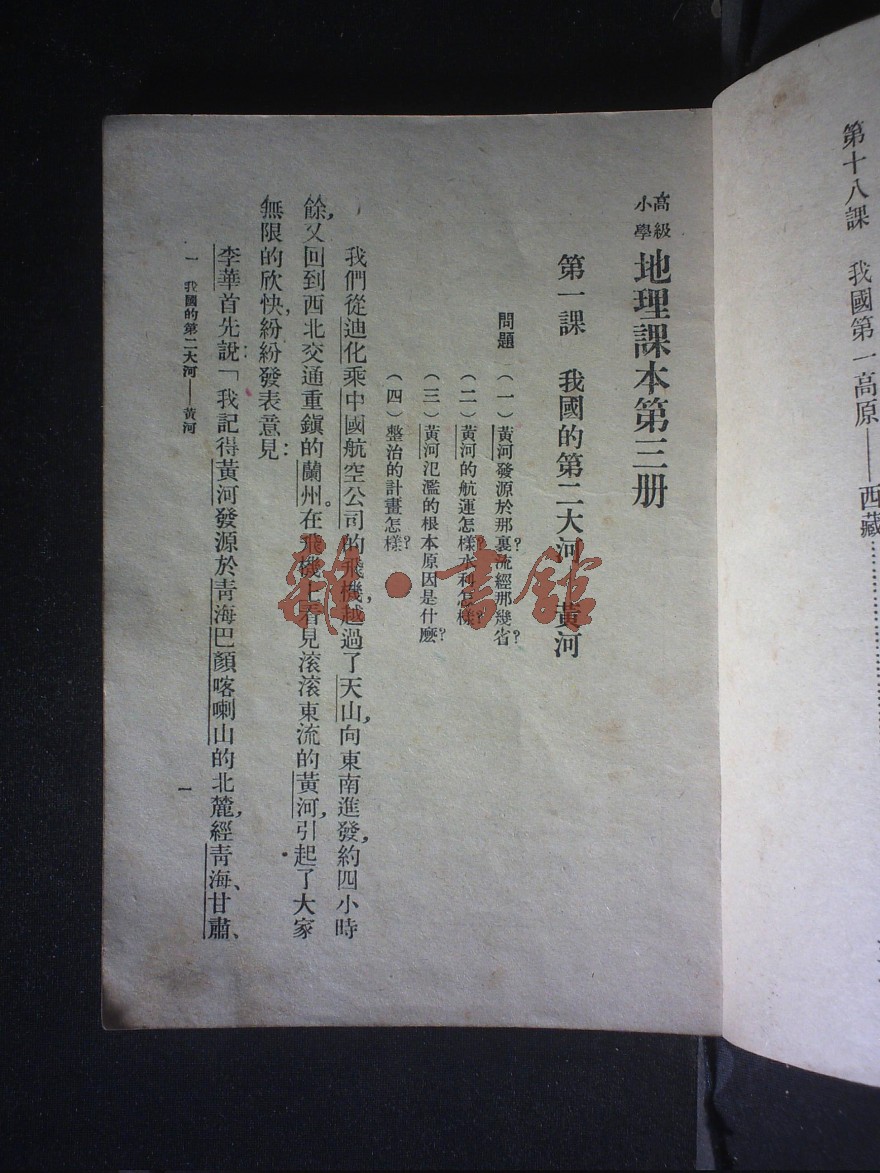 第十八課　我國第一高原——西藏
高級小學
地理課本第三册
第一課　我國的第二大河　黃河
問題　（一）黃河發源於那裏？流經那幾省？
（二）黃河的航運怎樣？水利怎樣？
（三）黃河氾濫的根本原因是什麼？
（四）整治的計畫怎樣？
我們從迪化乘中國航空公司的飛機，越過了天山，向東南進發，約四小時
餘，又回到西北交通重鎮的蘭州。在飛機上看見滚滚東流的黃河，引起了大家
無限的欣快，紛紛發表意見：
李華首先說：「我記得黃河發源於青海巴顏喀喇山的北麓，經青海、甘肅、
一　我國的第二大河——黃河
一
雜·書館